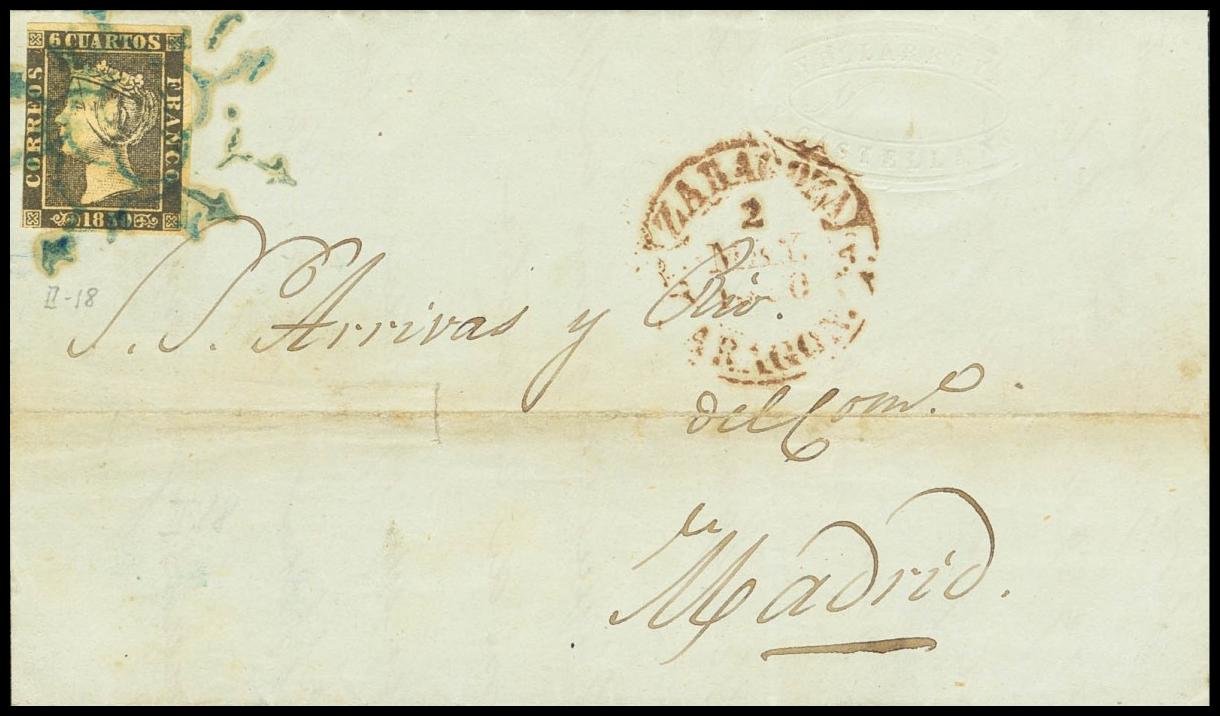 6 CUARTOS
CORREOS
FRANCO
1850
II-18
ZARAGOZA
2
ARAGON.
S. S. Arrivas y Rio.
del Comº.
Madrid.